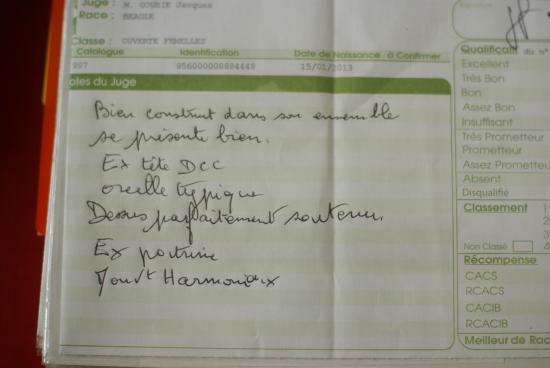 Juge : M. GOURIE Jacques
Race : BEAGLE
Classe : OUVERTE FEMELLES
Catalogue Identification Date de Naissance à Confirmer
997 956000008884448 15/01/2013
otes du Juge
Bien construit dans son ensemble
se présente bien.
Ex tête DCC
oreille typique
Dessus parfaitement soutenu.
Ex poitrine
Mouvt Harmonieux
Signature
Qualificatif
Excellent
Très Bon
Bon
Assez Bon
Insuffisant
Très Prometteur
Prometteur
Assez Prometteu
Absent
Disqualifié
Classement
Non Classé
Récompense
CACS
RCACS
CACIB
RCACIB
Meilleur de Rac